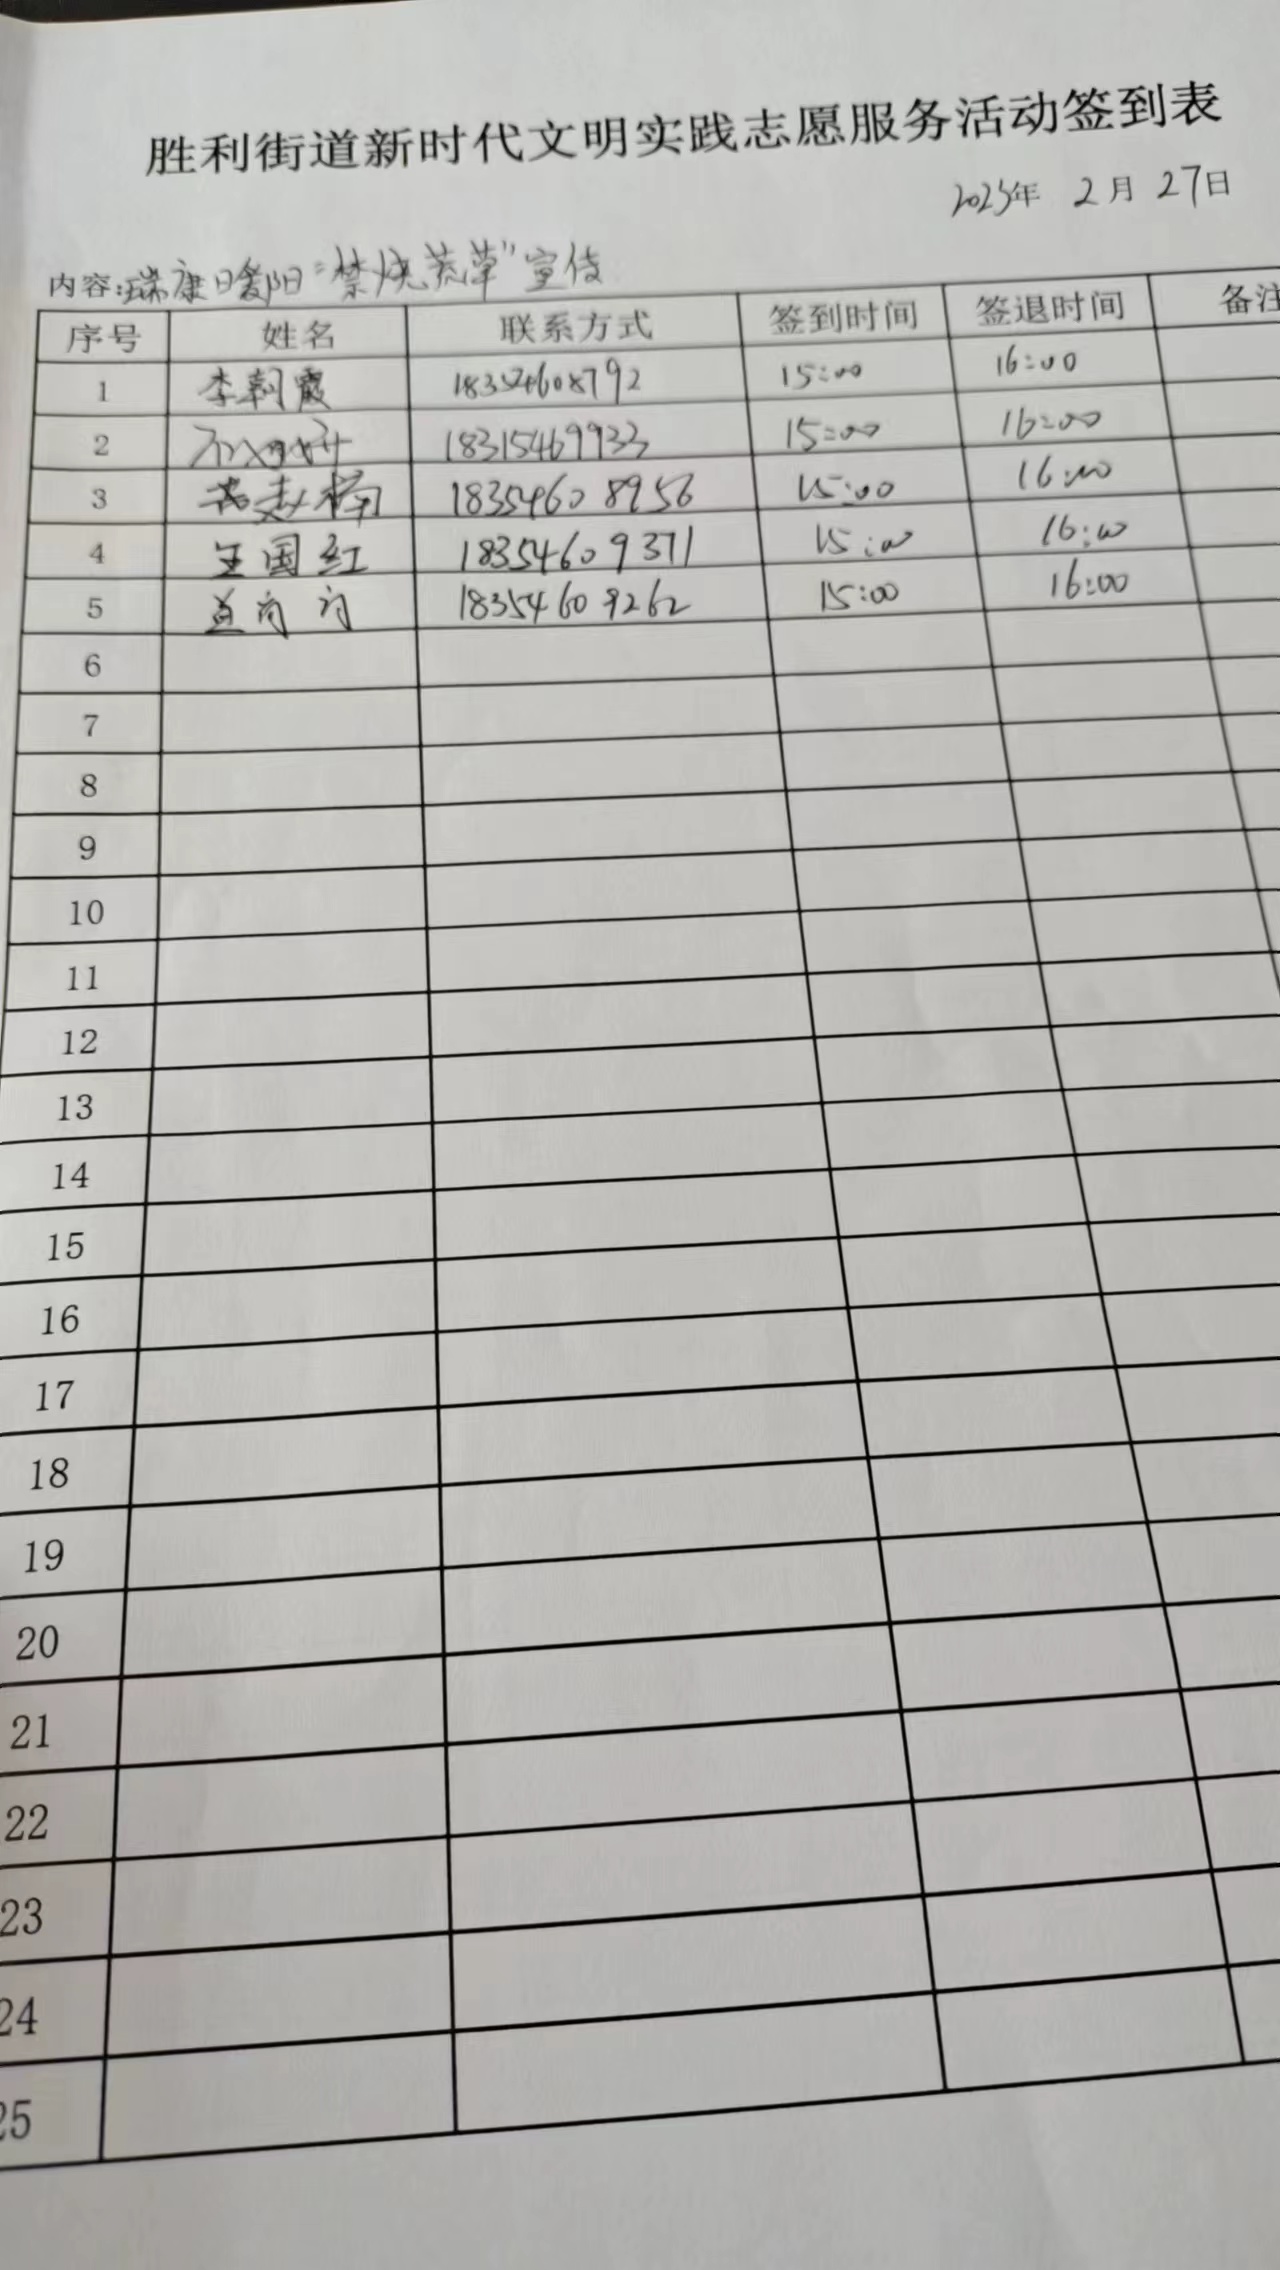 胜利街道新时代文明实践志愿服务活动签到表
2023年 2月 27日
内容:瑞康暖阳"禁烧荒草"宣传
序号 姓名 联系方式 签到时间 签退时间 备注
1 李朝霞 18354608792 15:00 16:00
2 18315469933 15:00 16:00
3 楠 18354608956 15:00 16:00
4 王国红 18354609371 15:00 16:00
5 18354609262 15:00 16:00
6
7
8
9
10
11
12
13
14
15
16
17
18
19
20
21
22
23
24
25